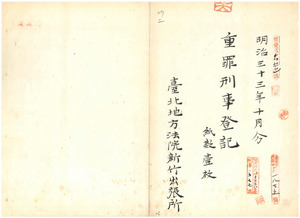 明治三十三年十月分
重罪刑事登記
紙數壹枚
臺北地方法院新竹出張所